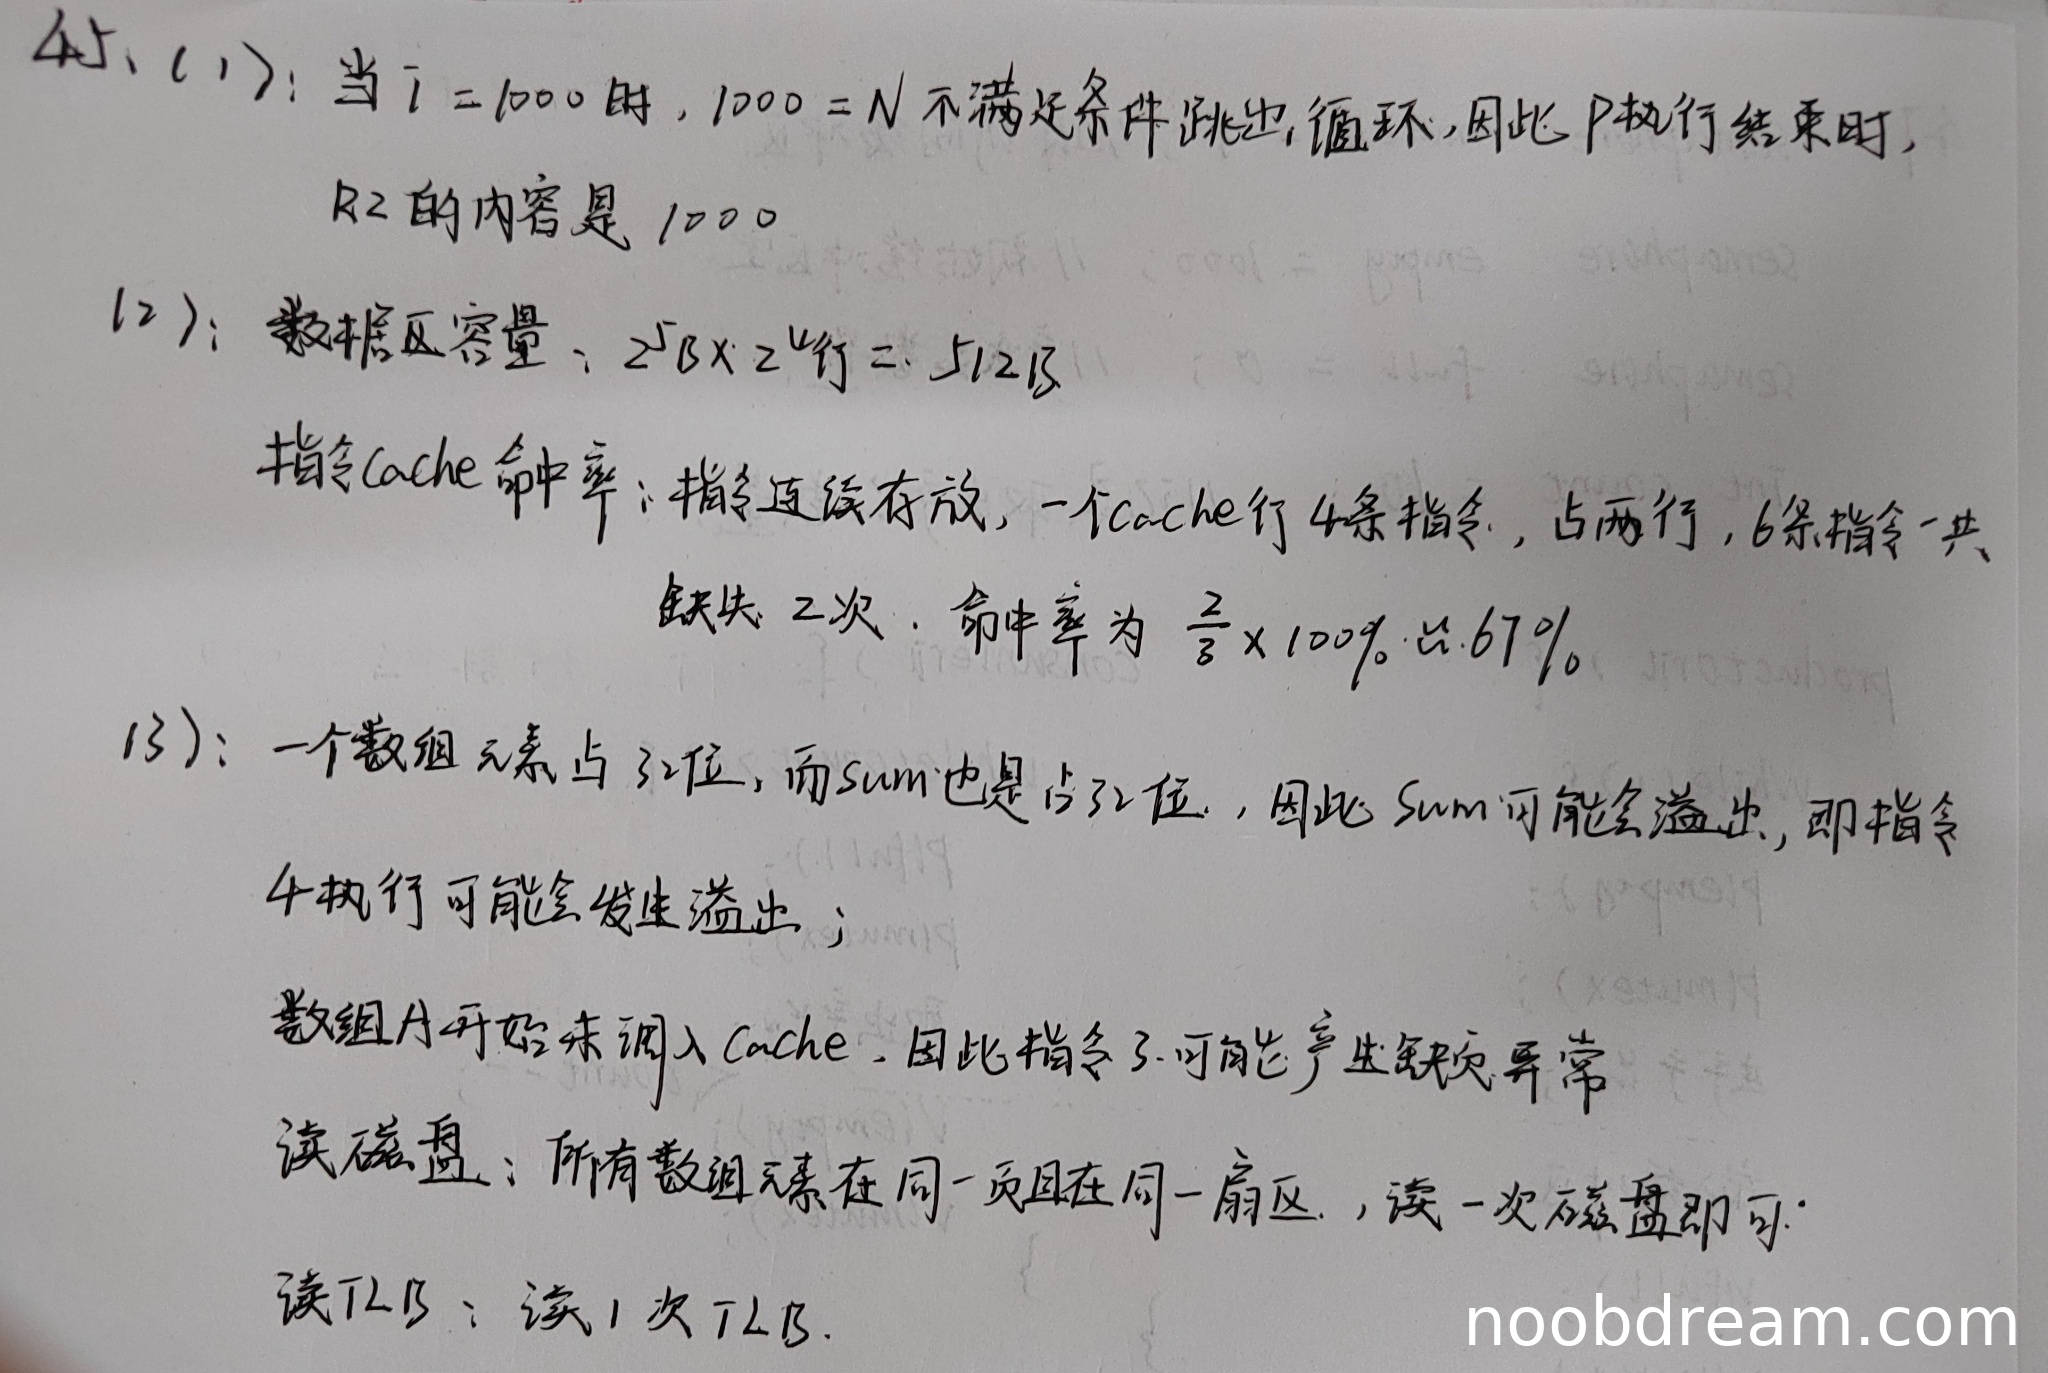 45、(1): 当i=1000时，1000=N不满足条件跳出循环，因此P执行结束时，
R2的内容是1000
(2): 数据区容量：2⁵B×2⁴行=512B
指令Cache命中率：指令连续存放，一个Cache行4条指令，占两行，6条指令一共
缺失2次．命中率为 2/3×100%≈67%
(3): 一个数组元素占32位，而sum也是占32位，因此sum可能会溢出，即指令
4执行可能会发生溢出；
数组A开始未调入Cache、因此指令3可能产生缺页异常
读磁盘：所有数组元素在同一页且在同一扇区，读一次磁盘即可．
读TLB：读1次TLB.
noobdream.com